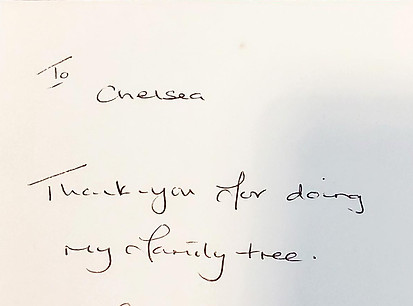 To
Chelsea
Thank-you for doing
my family tree.